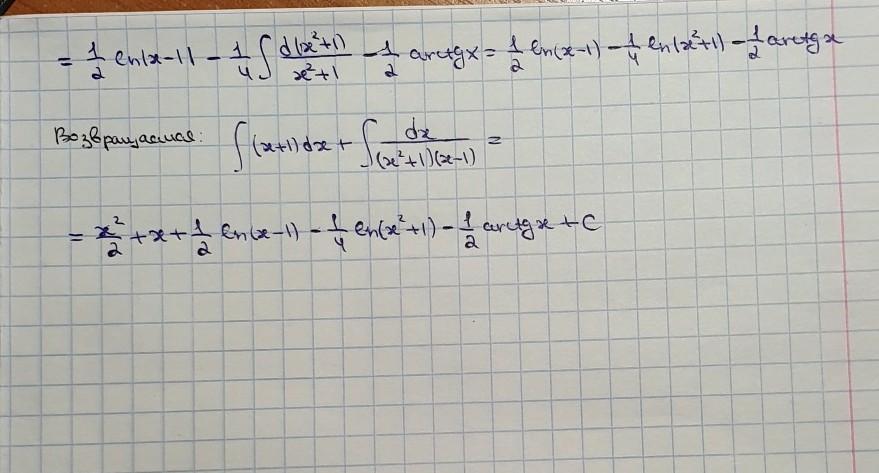 = 1/2 ln|x-1| - 1/4 ∫ d(x²+1)/(x²+1) - 1/2 arctgx = 1/2 ln(x-1) - 1/4 ln(x²+1) - 1/2 arctg x
Возвращаемся: ∫(x+1)dx + ∫ dx/((x²+1)(x-1)) =
= x²/2 + x + 1/2 ln(x-1) - 1/4 ln(x²+1) - 1/2 arctg x + C